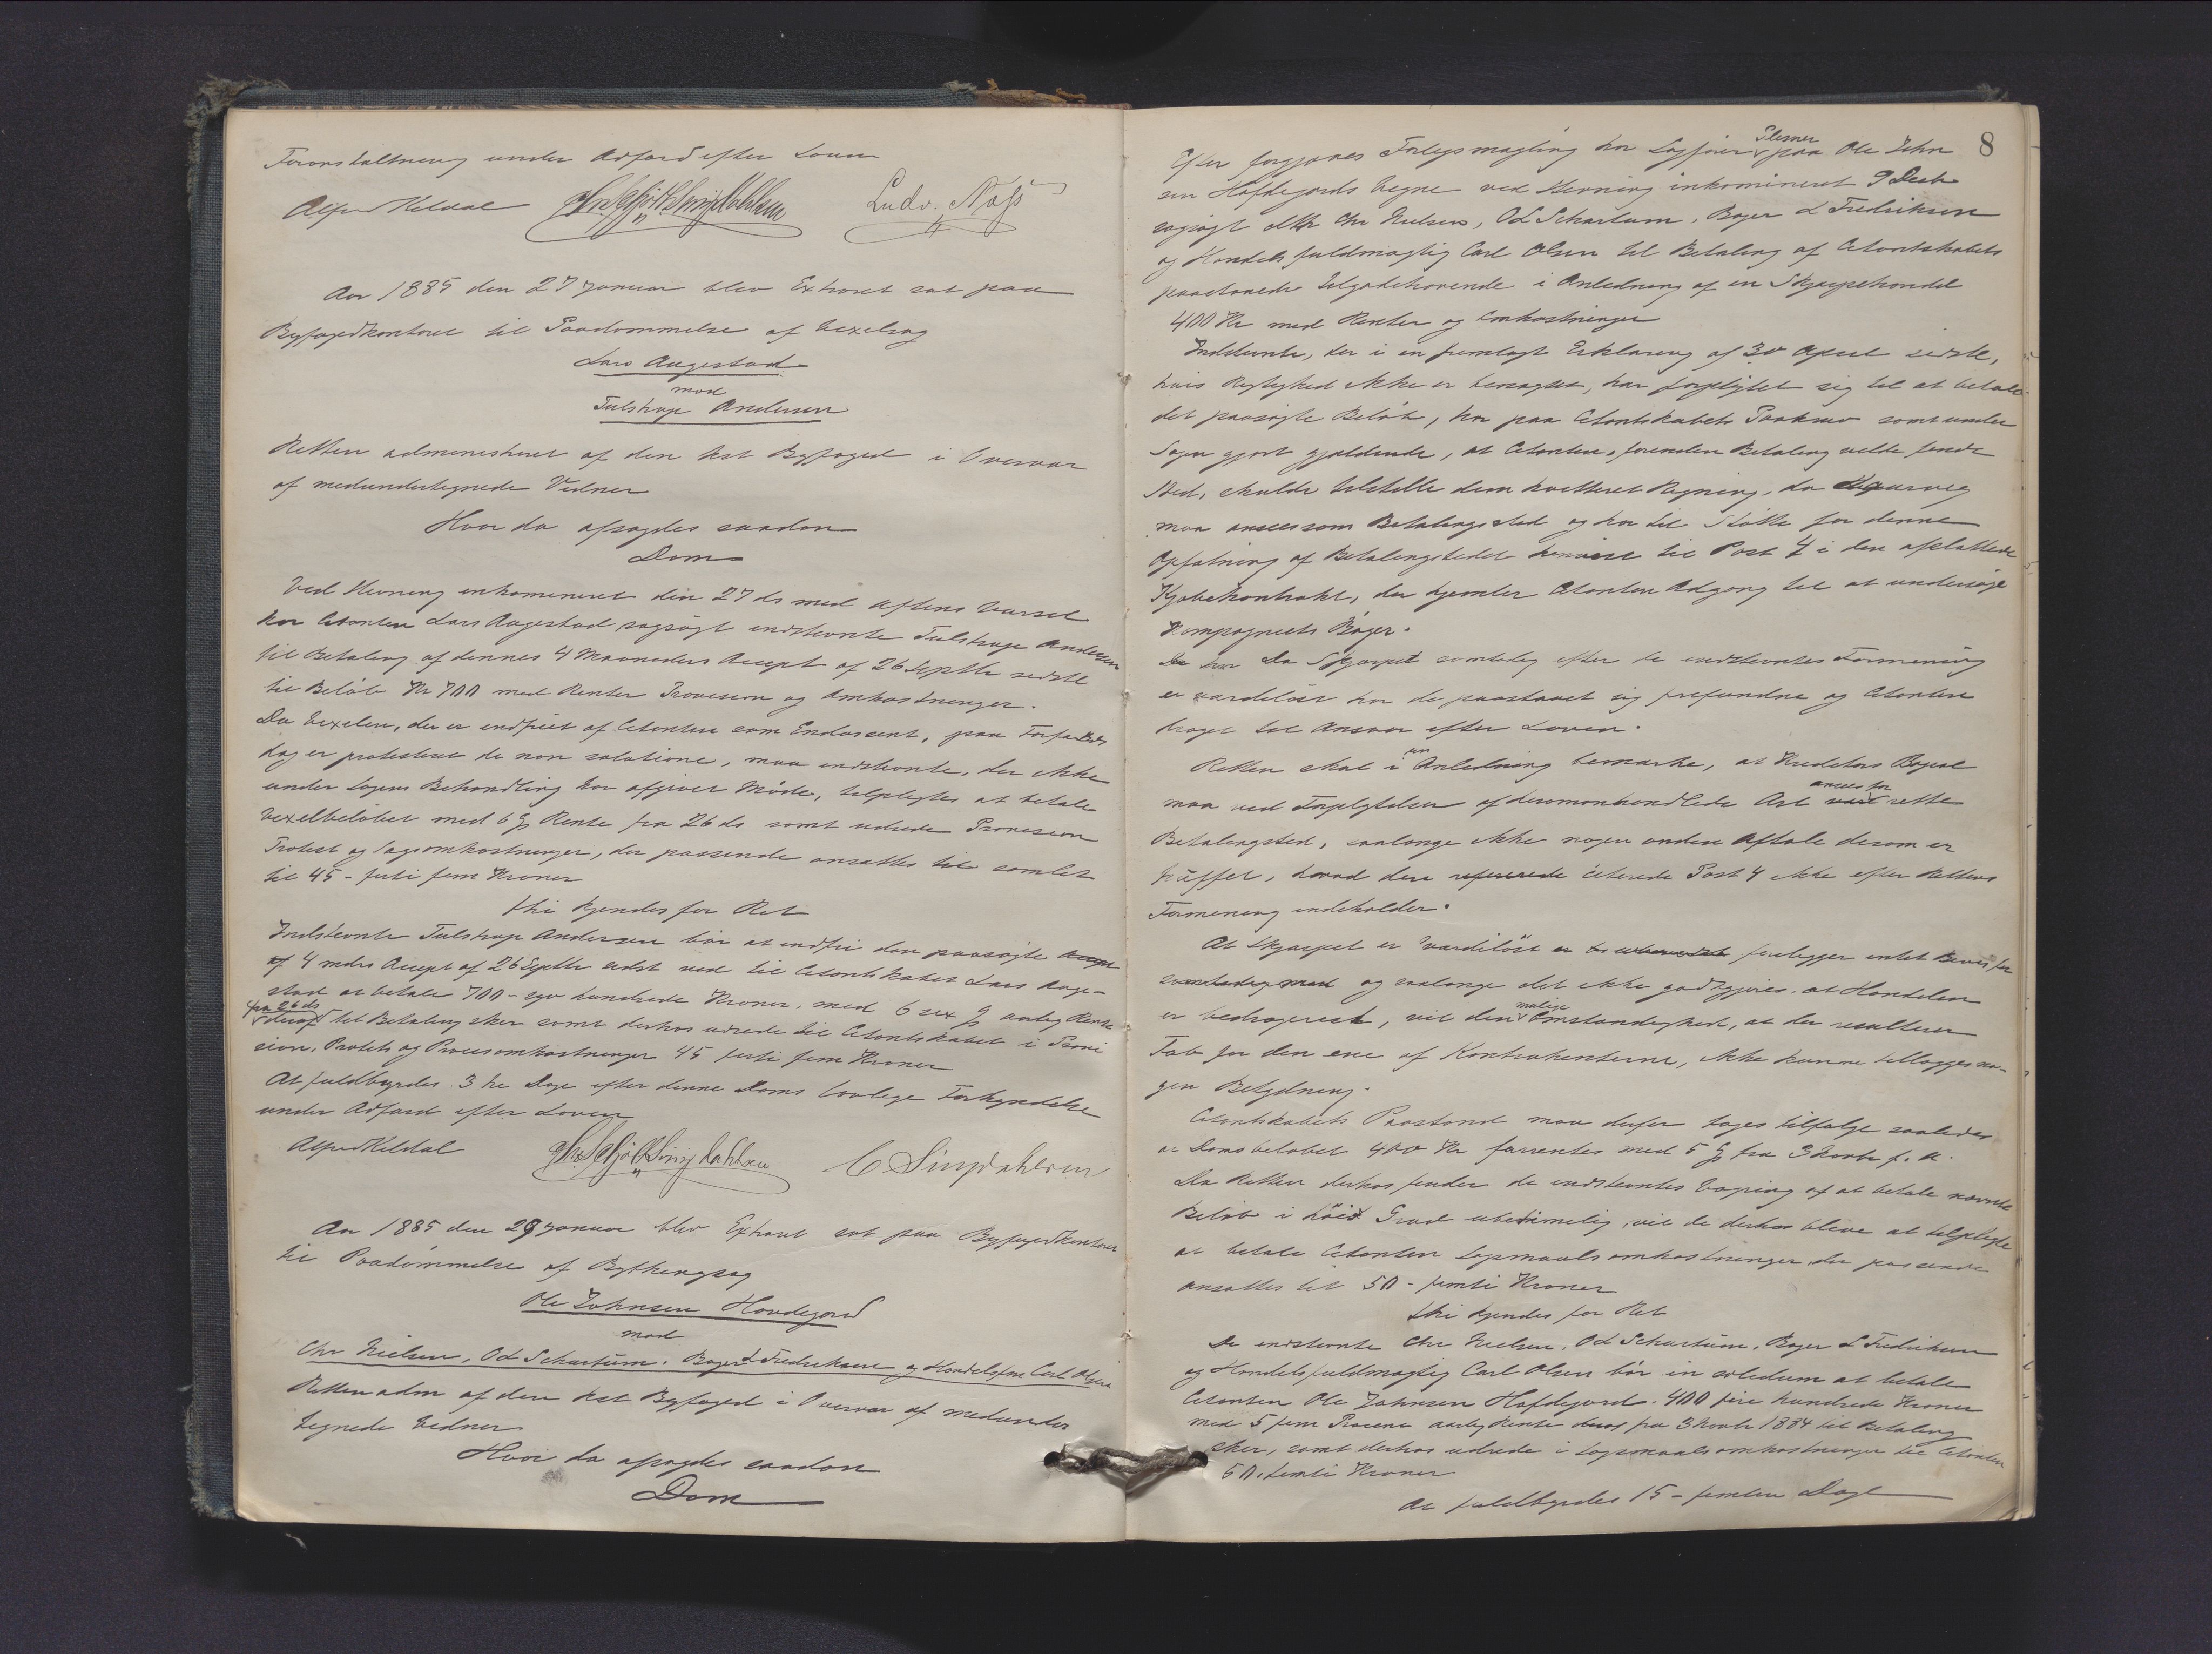 Foranstaltning under Adfærd efter Loven
Alfred Keldal Ludv. Næss
Aar 1885 den 27 Januar blev Extraret sat paa
Byfogedkontoret til Paadømmelse af Vexelsag
Lars Augestad
mod
Tulstrup Andersen
Retten administreret af den kst Byfoged i Overvær
af medundertegnede Vidner
Hvor da afsagdes saadan
Dom
Ved Stevning inkamineret den 27 ds med Aftens Varsel
har Citanten Lars Augestad sagsøgt indstevnte Tulstrup Andersen
til Betaling af dennes 4 Maaneders Accept af 26 Septbr sidstl
til Beløb Kr 700 med Renter Provision og Omkostninger.
Da Vexelen, der er indfriet af Citanten som Endossent, paa Forfalds
dag er protesteret de non solutione, maa indstevnte, der ikke
under Sagens Behandling har afgivet Møde, tilpligtes at betale
Vexelbeløbet med 6 % Rente fra 26 ds samt udrede Provision
Protest og Sagsomkostninger, der passende ansættes til samlet
til 45 - forti fem Kroner
thi kjendes for Ret
Indstevnte Tulstrup Andersen bør at indfri den paasøgte Accept
af 4 mdrs Accept af 26 Septbr sidst ved til Citantskabet Lars Auge-
stad at betale 700 - syv hundrede Kroner, med 6 sex % aarlig Rente
fra 26 ds
deraf til Betaling sker samt derhos udrede til Citantskabet i Provi
sion, Protest og Procesomkostninger 45 forti fem Kroner
At fuldbyrdes 3 tre Dage efter denne Doms lovlige Forkyndelse
under Adfærd efter Loven
Alfred Keldal C Singdahlsen
Aar 1885 den 29 Januar blev Extraret sat paa Byfogedkontoret
til Paadømmelse af Bythingssag
Ole Johnsen Hovdegard
mod
Chr Nielsen, O d Schartum, Bager L Fredriksen og Handelsfm Carl Olsen
Retten adm af den kst Byfoged i Overvær af medunder
tegnede Vidner
Hvor da afsagdes saadan
Dom
8
Efter forgjæves Forligsmægling har Sagfører paa Ole John
Plesner
sen Hofdegards Vegne ved Stevning inkamineret 9 Decb
sagsøgt Chr Nielsen, O d Schartum, Bager L Fredriksen
og Handelsfuldmægtig Carl Olsen til Betaling af Citantskabets
paastaaede Tilgodehavende i Anledning af en Skjærpehandel
400 Kr med Renter og Omkostninger
Indstevnte, der i en fremlagt Erklæring af 30 April sidstl,
hvis Rigtighed ikke er benægtet, har forpligtet sig til at betale
det paasøgte Beløb, har paa Citantskabets Paakrav samt under
Sagen gjort gjældende, at Citanten, forinden Betaling vilde finde
Sted, skulde tilstille dem kvitteret Regning, da
maa ansees som Betalingssted og har til Støtte for denne
Opfatning af Betalingsstedet henvist til Post 4 i den afsluttede
Kjøbekontrakt, der hjemler Citanten Adgang til at undersøge
Kompagniets Bøger.
Da Skjærpet samtidig efter de indstevntes Formening
er værdiløst har de paastaaet sig frifundne og Citanten
draget til Ansvar efter Loven.
Retten skal i Anledning bemærke, at Kreditors Bopæl
maa ved Forpligtelser af denomhandlede Art rette
ansees for
Betalingssted, saalænge ikke nogen anden Aftale desom er
truffet, hvad den refererede citerede Post 4 ikke efter Rettens
Formening indeholder.
At Skjærpet er værdiløst er foreligger intet Bevis for
og saalænge det ikke godtgjøres at Handelen
er bedragerisk, vil den mulige Omstændighed, at der resulterer
Tab for den ene af Kontrahenterne, ikke kunne tillægges no-
gen Betydning.
Citantskabets Paastand maa derfor tages tilfølge saaledes
at Domsbeløbet 400 Kr forrentes med 5 % fra 3 Novbr f. A.
Da Retten derhos finder de indstevntes Vægring af at betale nævnte
Beløb i høi Grad ubetimelig, vil de derhos blive at tilpligte
at betale Citanten Sagsmaalsomkostninger, der passende
ansættes til 50 - femti Kroner
thi kjendes for Ret
De indstevnte Chr Nielsen, O d Schartum, Bager L Fredriksen
og Handelsfuldmægtig Carl Olsen bør in solidum at betale
Citanten Ole Johnsen Hofdegard 400 fire hundrede Kroner
med 5 fem Procent aarlig Rente fra 3 Novbr 1884 til Betaling
sker, samt derhos udrede i Sagsmaalsomkostninger til Citanten
50. femti Kroner
At fuldbyrdes 15 - femten Dage